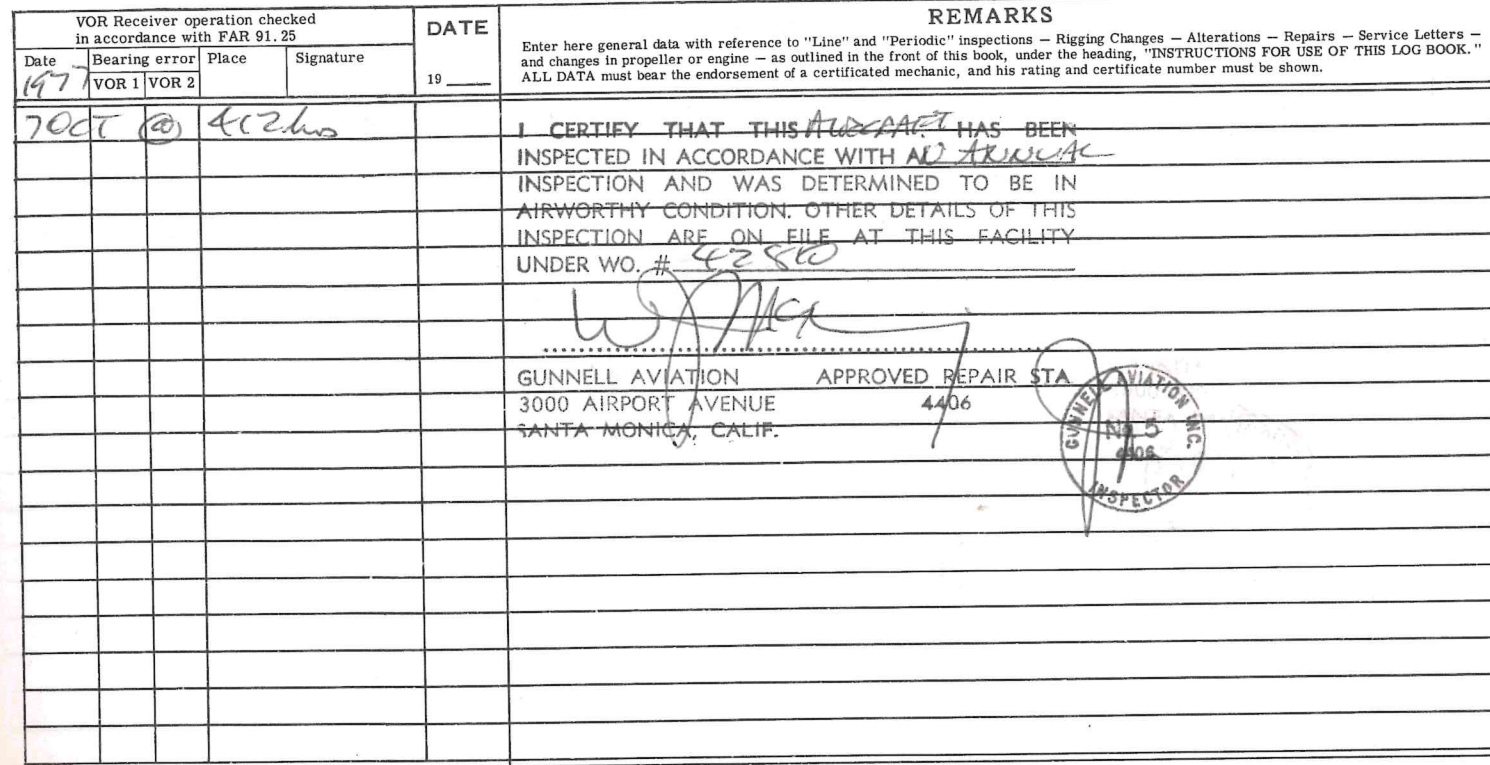 VOR Receiver operation checked
in accordance with FAR 91.25
Date
1977
Bearing error
VOR 1 VOR 2
Place
Signature
DATE
19
REMARKS
Enter here general data with reference to "Line" and "Periodic" inspections — Rigging Changes — Alterations — Repairs — Service Letters —
and changes in propeller or engine — as outlined in the front of this book, under the heading, "INSTRUCTIONS FOR USE OF THIS LOG BOOK."
ALL DATA must bear the endorsement of a certificated mechanic, and his rating and certificate number must be shown.
7 OCT @ 412 hrs
I CERTIFY THAT THIS AIRCRAFT HAS BEEN
INSPECTED IN ACCORDANCE WITH AN ANNUAL
INSPECTION AND WAS DETERMINED TO BE IN
AIRWORTHY CONDITION. OTHER DETAILS OF THIS
INSPECTION ARE ON FILE AT THIS FACILITY
UNDER WO. #
GUNNELL AVIATION APPROVED REPAIR STA
3000 AIRPORT AVENUE 4406
SANTA MONICA, CALIF.
GUNNELL AVIATION INC.
No. 5
4406
INSPECTOR